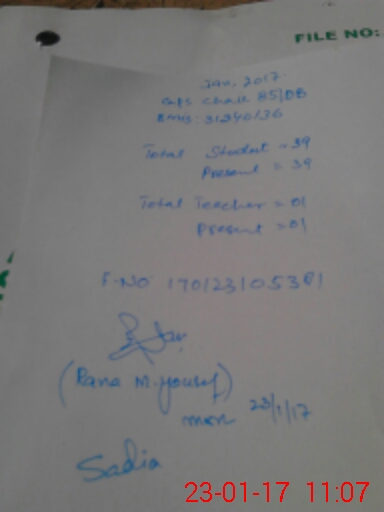 FILE NO:
Jan, 2017
GPS Chak 85/DB
EMIS: 31240136
Total Student = 39
Present = 39
Total Teacher = 01
Present = 01
F-NO 170123105381
(Rana M. Yousaf)
mon 23/1/17
Sadia
23-01-17 11:07